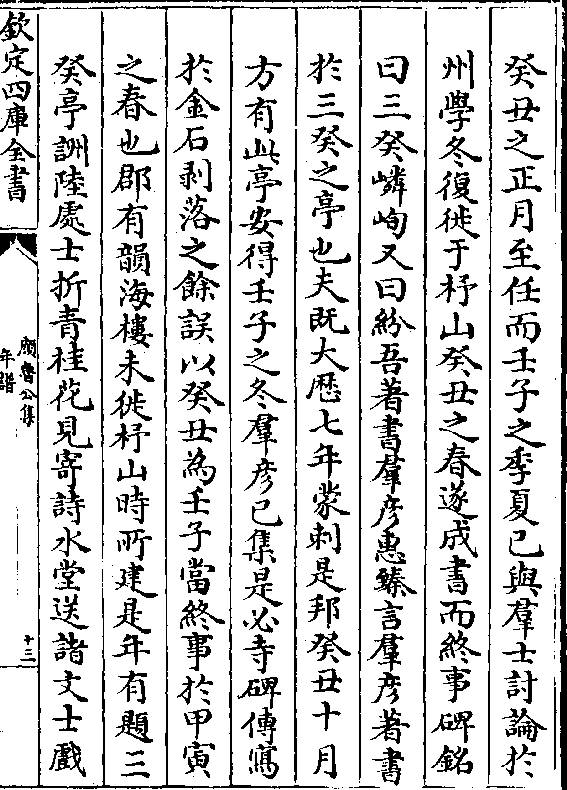 癸丑之正月至任而壬子之季夏已與羣士討論於
州學冬復徙于杼山癸丑之春遂成書而終事碑銘
曰三癸嶙峋又曰紛吾著書羣彦惠臻言羣彦著書
於三癸之亭也夫既大歴七年蒙刺是邦癸丑十月
方有此亭安得壬子之冬羣彦已集是必寺碑傳寫
於金石剥落之餘誤以癸丑為壬子當終事於甲寅
之春也郡有韻海樓未徙杼山時所建是年有題三
癸亭詶陸處士折青桂花見寄詩水堂送諸文士戲
欽定四庫全書
顔魯公集
年譜
十三